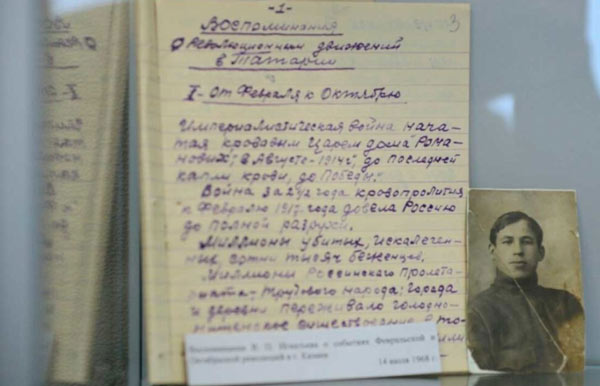 -1-
3
Воспоминания
о революционном движений
в Татарии
I - От Февраля к Октябрю
Империалистическая война нача-
тая кровавым царем дома Рома-
новых; в Августе-1914 г, до последней
капли крови, до Победы."
Война за 2 1/2 года кровопролития
к Февралю 1917 года довела Россию
до полной разрухи.
Миллионы убитых, искалечен-
ных, сотни тысяч беженцев.
Миллионы Российского пролета-
риата - трудового народа; города
и деревни переживало голодно-
нищенское существование в
Воспоминания о событиях Февральской и
Октябрьской революций в г. Казани
14 июля 1968 г.